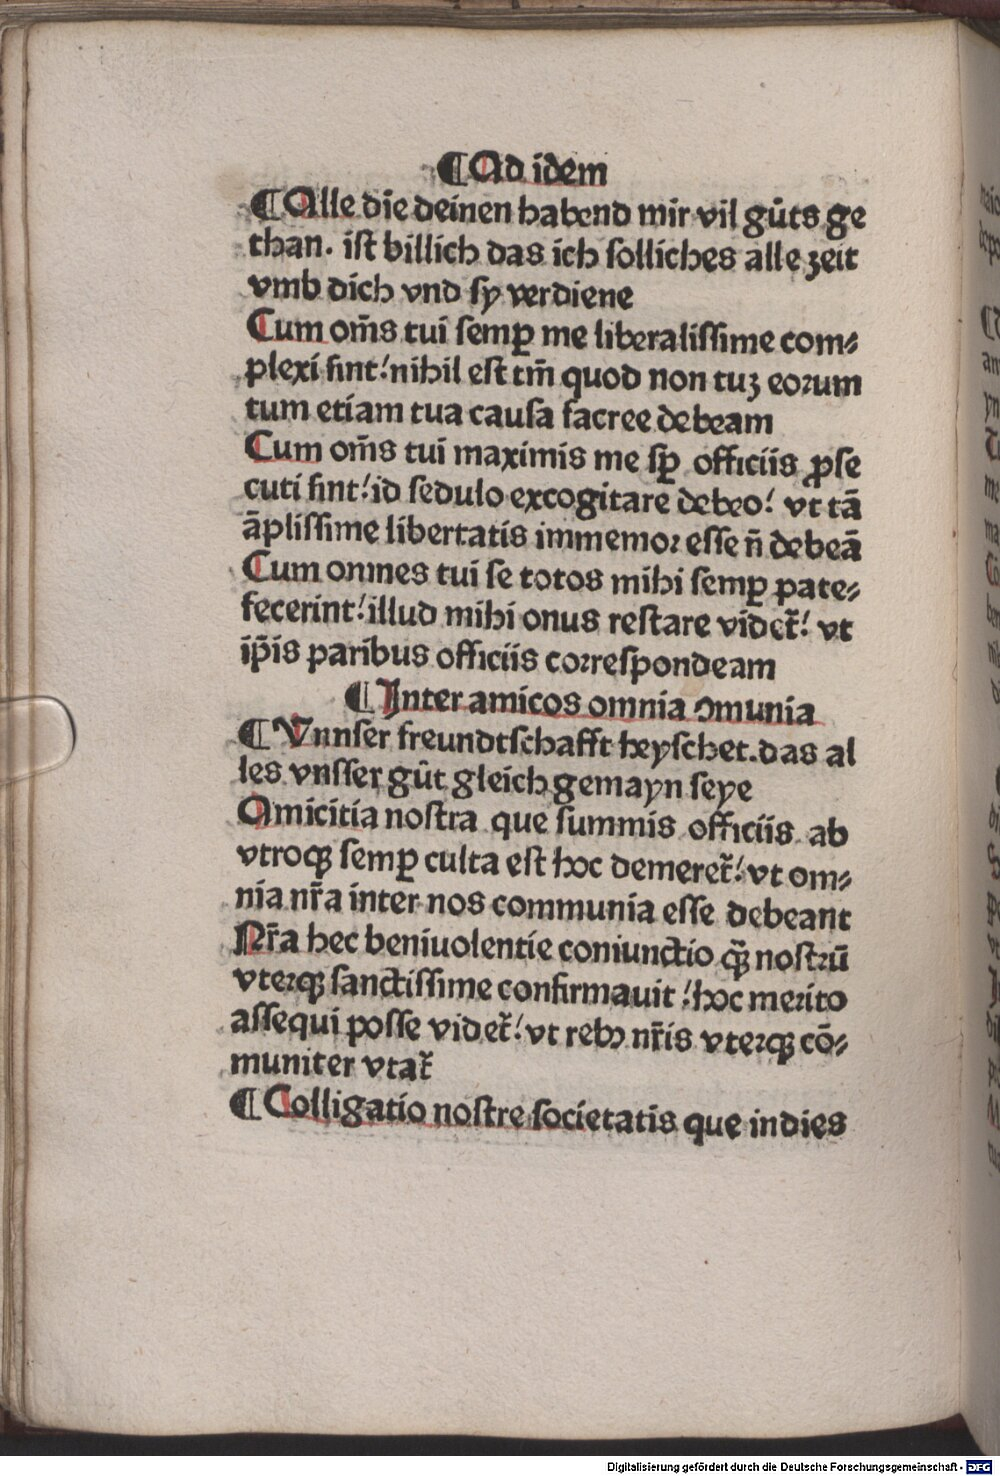 ¶Ad idem
¶Alle die deinen habend mir vil gůts ge
than. ist billich das ich solliches alle zeit
vmb dich vnd sy verdiene
Cum om̄s tui semꝑ me liberalissime com⸗
plexi sint: nihil est tm̄ quod non tuꝫ eoꝛum
tum etiam tua causa facree debeam
Cum om̄s tui maximis me sꝑ officiis ꝓse
cuti sint: id sedulo excogitare debeo: vt tā
āplissime libertatis immemoꝛ esse n̄ debeā
Cum onmes tui se totos mihi semꝑ pate⸗
fecerint: illud mihi onus restare videt̄: vt
ip̄is paribus officiis coꝛrespondeam
¶Inter amicos omnia ꝯmunia
¶Vnnser freundtschafft heyschet. das al
les vnsser gůt gleich gemayn seye
Amicitia nostra que summis officiis ab
vtroqꝫ semꝑ culta est hoc demeret̄: vt om⸗
nia nr̄a inter nos communia esse debeant
Nr̄a hec beniuolentie coniunctio qꝫ̄ nostꝛū
vterqꝫ sanctissime confirmauit: hoc merito
assequi posse videt̄: vt rebꝫ nr̄is vterqꝫ cō⸗
muniter vtat̄
¶Colligatio nostre societatis que indies
Digitalisierung gefördert durch die Deutsche Forschungsgemeinschaft - DFG